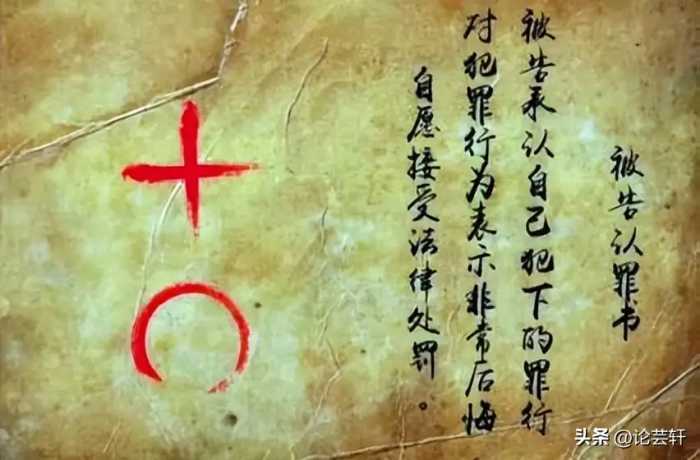 被告认罪书
被告承认自己犯下的罪行
对犯罪行为表示非常后悔
自愿接受法律处罚。
十
头条 @论芸轩